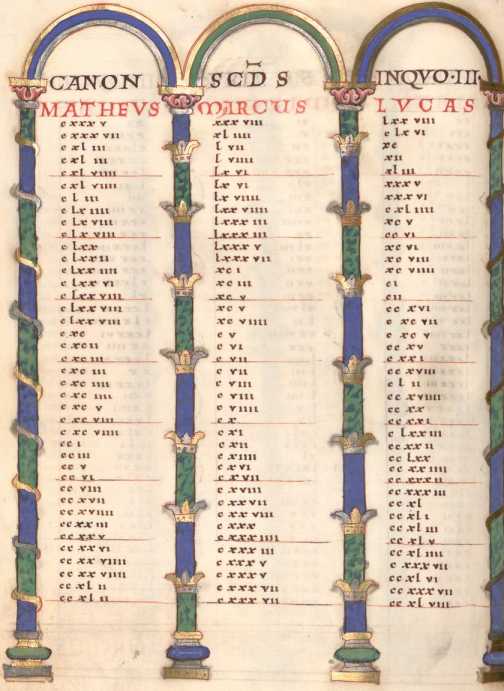 CANON
SCD S
INQVO·III
MATHEVS
MARCUS
LVCAS
c xxx v
c xxx vii
c xl iii
c xl iii
c xl viiii
c xl viiii
c l iii
c lx iiii
c lx viii
c lx viiii
c lxx
c lxx ii
c lxx iiii
c lxx vi
c lxx viii
c lxx viii
c lxx viiii
c xc
c xc ii
c xc iii
c xc iii
c xc iiii
c xc iiii
c xc v
c xc viii
c xc viiii
cc i
cc iii
cc v
cc vi
cc viii
cc xvii
cc xviiii
cc xx iii
cc xx v
cc xx vi
cc xx viiii
cc xx viiii
cc xl ii
cc xl ii
xxx viii
xl iiii
l vii
l viiii
lx vi
lx vi
lx viiii
lxxx iii
lxxx iiii
lxxx v
lxxx vii
xc i
xc iii
xc v
xc v
xc viiii
c v
c vi
c vi
c vii
c viii
c viii
c viiii
c x
c xi
c xii
c xiiii
c xvi
c xvii
c xviii
c xx vii
c xx viii
c xxx
c xxx iiii
c xxx iii
c xxx v
c xxx v
c xxx vii
c xxx vii
lxx viii
c lx vi
xc
xii
xl iii
xxx v
xxx vi
c xl iiii
xc v
cc vi
xc vi
xc viii
xc viiii
c i
c ii
cc xvi
c xc vii
c xc v
cc xv
c xx i
cc xviii
c l ii
cc xviiii
cc xx
cc xx i
c lxx iii
cc xx ii
cc lxx
cc xx iiii
cc xxx ii
cc xxx iii
cc xl
cc xl i
cc xl iii
cc xl v
cc xl iiii
c xxx vii
cc xl vi
cc xxx vii
cc xl viii